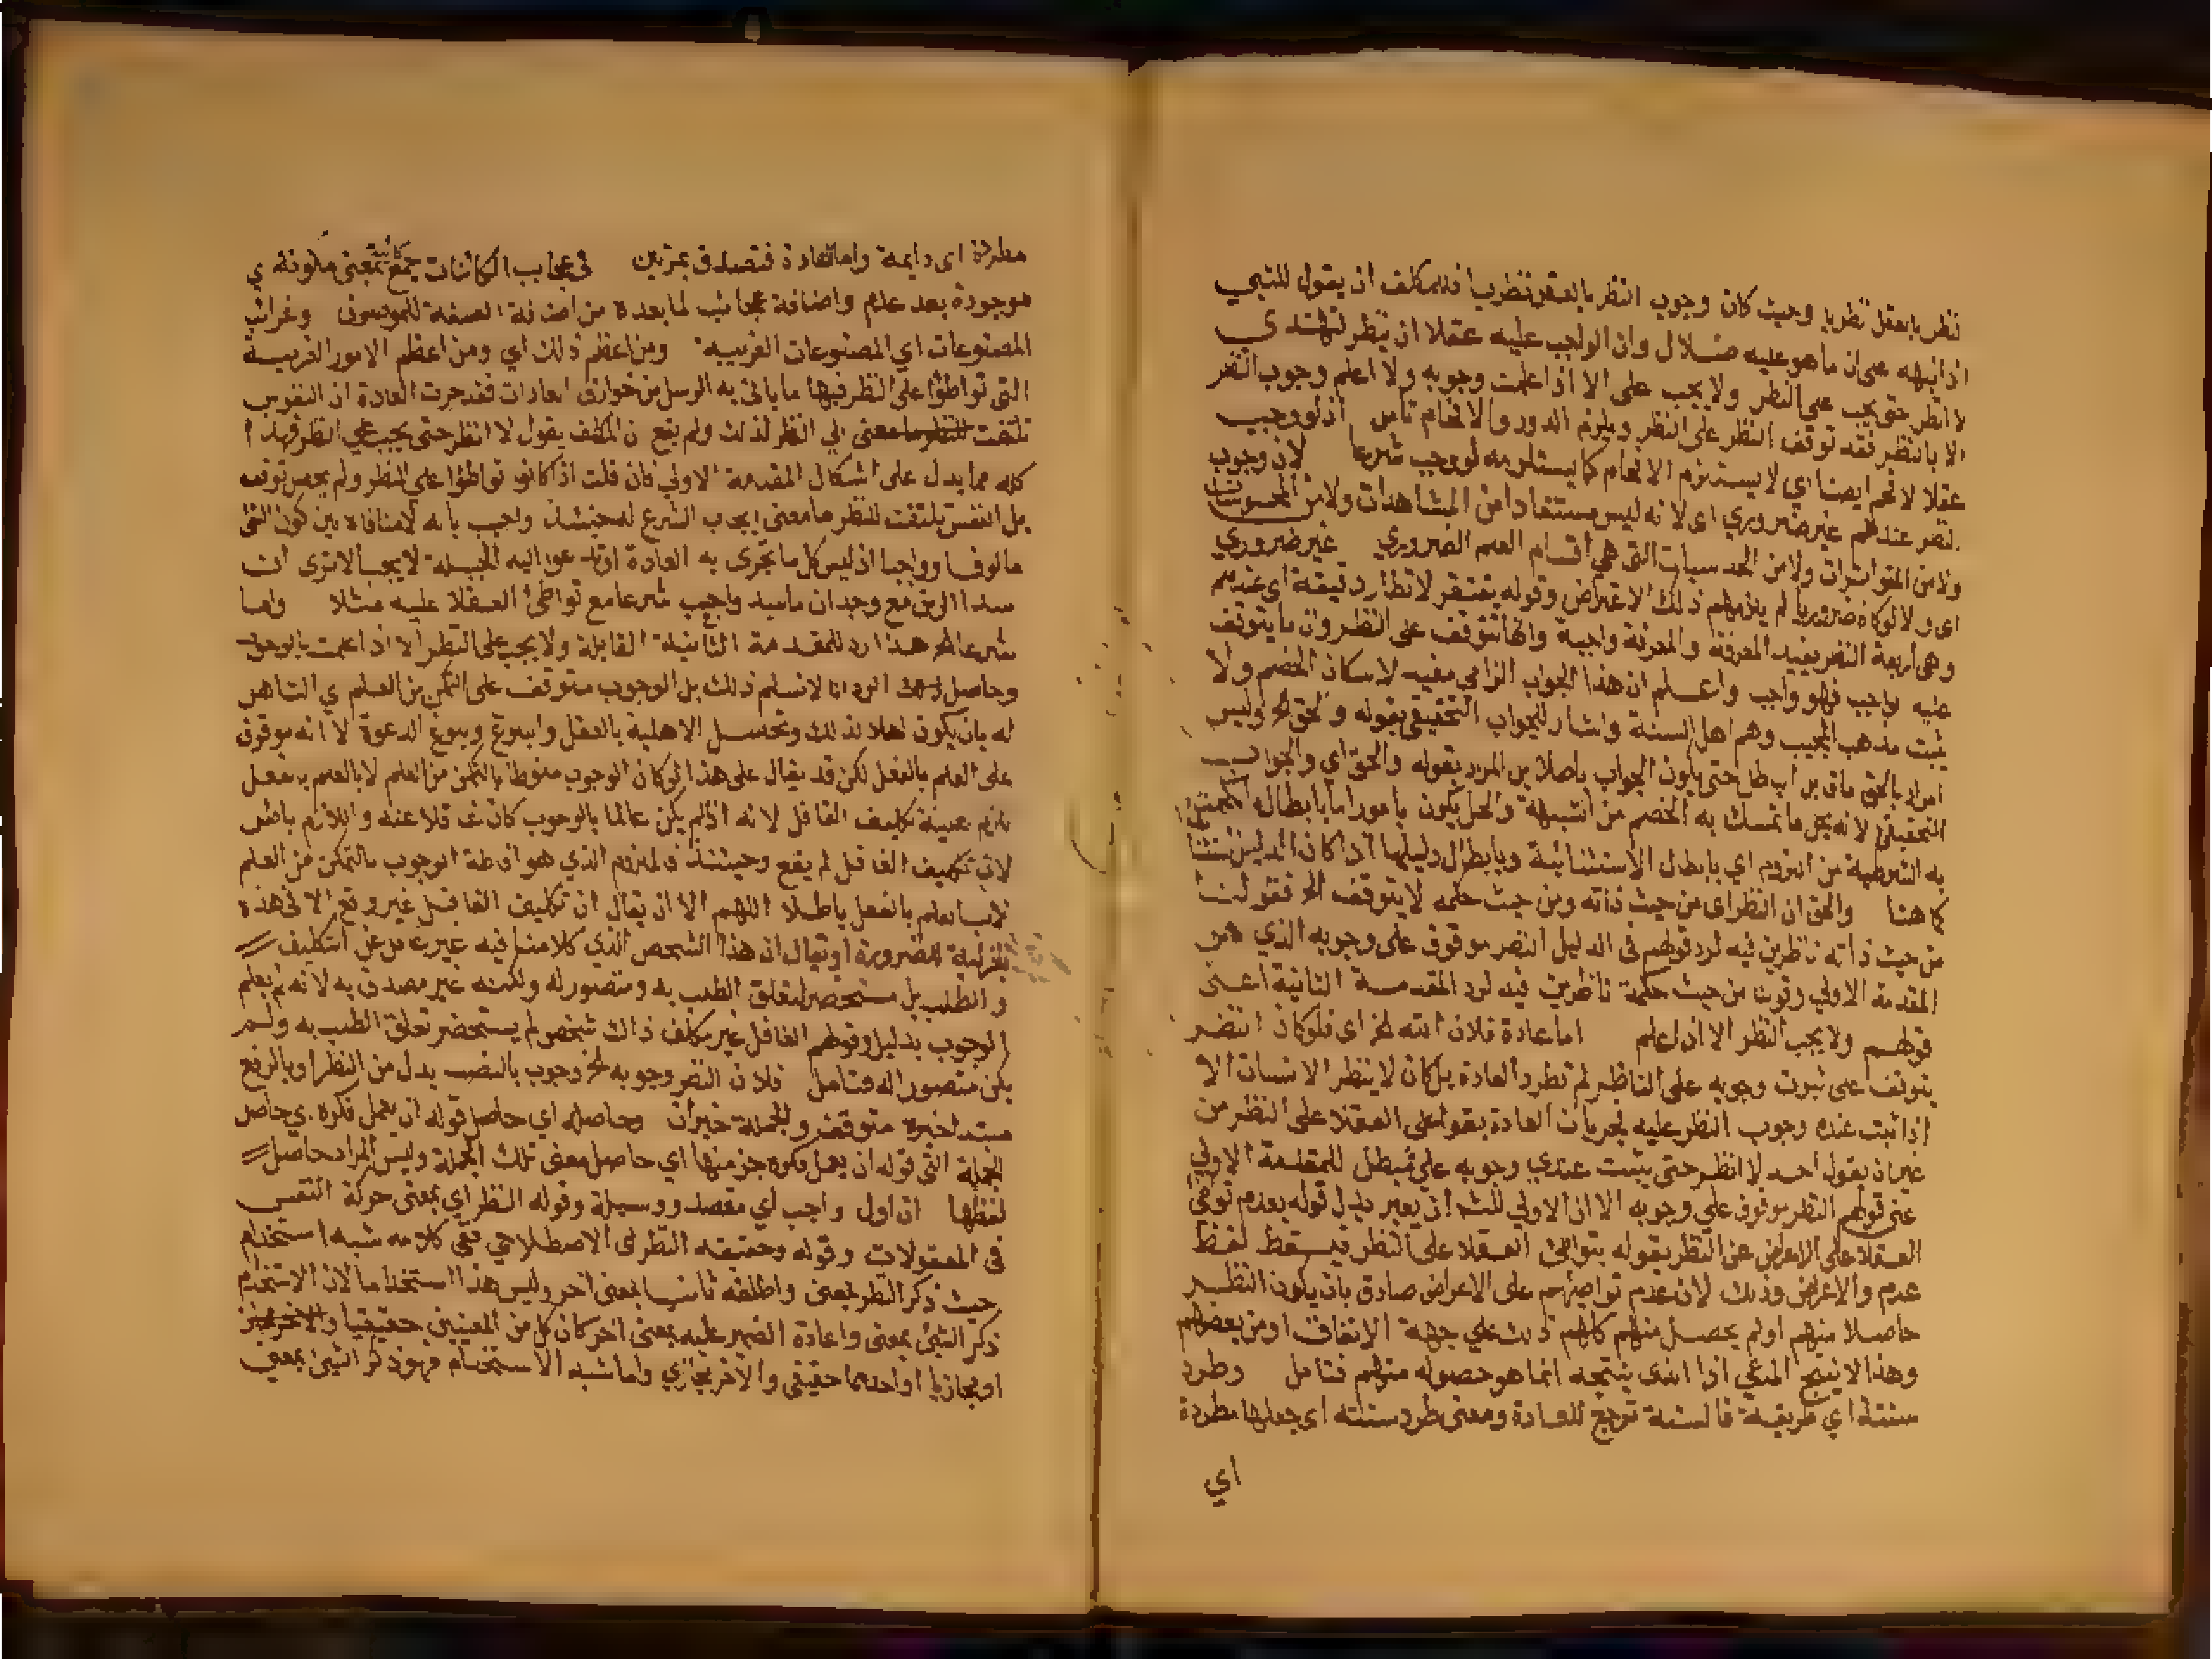 النظر بالعقل نظريا وحيث كان وجوب النظر بالعقل نظريا فللمكلف ان يقول للنبي
اذا نبهه على ان ما هو عليه ضلال وان الواجب عليه عقلا ان ينظر ليهتدي
لا انظر حتى يجب على النظر ولا يجب على الا اذا علمت وجوبه ولا اعلم وجوب النظر
الا بالنظر فقد توقف النظر على النظر ويلزم الدور والافحام تامل اذ لو وجب
عقلا لافحم ايضا اي لا يستلزم الافحام كما يستلزمه لو وجب شرعا لان وجوب
النظر عندهم غير ضروري اي لانه ليس مستفادا من المشاهدات ولا من المحسوسات
ولا من المتواترات ولا من الحدسيات التي هي اقسام العلم الضروري غير ضروري
اي ولا لو كان ضروريا لم يلزمهم ذلك الاعتراض وقوله يفتقر لانظار دقيقة اي عندهم
وهي اربعة النظر يفيد المعرفة والمعرفة واجبة وانها تتوقف على النظر وان ما يتوقف
عليه الواجب فهو واجب واعلم ان هذا الجواب الزامي مفيد لاسكات الخصم ولا
يثبت مذهب المجيب وهم اهل السنة واشار للجواب التحقيقي بقوله والحق الخ وليس
المراد بالحق ما قابل الباطل حتى يكون الجواب باطلا بل المراد بقوله والحق اي والجواب
التحقيقي لانه يحل ما تمسك به الخصم من الشبهة والحل يكون بامور اما بابطال ما حكمت
به الشرطية من اللزوم اي بابطال الاستثنائية وبابطال دليلها اذا كان الدليل استثنائيا
كما هنا والحق ان النظر اي من حيث ذاته ومن حيث حكمه لا يتوقف الخ فقولنا
من حيث ذاته ناظرين فيه لرد قولهم في الدليل النظر موقوف على وجوبه الذي هو
المقدمة الاولى وقولنا من حيث حكمه ناظرين فيه لرد المقدمة الثانية اعني
قولهم ولا يجب النظر الا ان اعلم اما عادة فلان الله الخ اي فلو كان النظر
يتوقف على ثبوت وجوبه على الناظر لم تطرد العادة بل كان لا ينظر الانسان الا
اذا ثبت عنده وجوب النظر عليه فجريان العادة بتواطئ العقلا على النظر من
غير ان يقول احد لا انظر حتى يثبت عندي وجوبه علي مبطل للمقدمة الاولى
عني قولهم النظر موقوف على وجوبه الا ان الاولى للشا ان يعبر بدل قوله بعدم توطئ
العقلا على الاعراض عن النظر بقوله بتواطئ العقلا على النظر فيسقط لفظ
عدم والاعراض وذلك لان عدم تواطئهم على الاعراض صادق بان يكون النظر
حاصلا منهم او لم يحصل منهم كلهم ذلك على جهة الاتفاق او من بعضهم
وهذا لا ينتج المدعي اذا الذي ينتجه انما هو حصوله منهم فتامل وطرد
سنته اي طريقته فالسنة ترجع للعادة ومعنى طرد سنته اي جعلها مطردة
اي
مطردة اي دايمة واما العادة فتصدق بمرتين في عجايب الكائنات جمع كائنة بمعنى مكونة اي
موجودة بعد عدم واضافة عجائب لما بعده من اضافة الصفة للموصوف وغرائب
المصنوعات اي المصنوعات الغريبة ومن اعظم ذلك اي ومن اعظم الامور الغريبة
التي تواطؤا على النظر فيها ما ياتي به الرسل من خوارق العادات فقد جرت العادة ان النفوس
تلتفت الي النظر لذلك ولم يقع ان المكلف يقول لا انظر حتى يجب علي النظر فهذا
كله مما يدل على اشكال المقدمة الاولي فان قلت اذا كانو تواطؤا على النظر ولم يحصل توقف
بل النفس تلتفت للنظر ما معنى ايجاب الشرع له حينئذ واجيب بانه لا منافاة بين كون الشئ
مالوفا وواجبا اذ ليس كل ما تجري به العادة او تدعوا اليه الجبلة لا يجب الا ترى ان
سد الرمق مع وجدان ما يسد واجب شرعا مع تواطئ العقلا عليه مثلا واما
شرعا الخ هذا رد للمقدمة الثانية القايلة ولا يجب على النظر الا اذا علمت بالوجوب
وحاصل الرد انا لا نسلم ذلك بل الوجوب متوقف على التمكن من العلم اي التاهل
له بان يكون اهلا لذلك وتحصل الاهلية بالعقل والبلوغ وبلوغ الدعوة لا انه موقوف
على العلم بالفعل لكن قد يقال على هذا لو كان الوجوب منوطا بالتمكن من العلم لا بالعلم بالفعل
للزم عليه تكليف الغافل لانه اذا لم يكن عالما بالوجوب كان غافلا عنه واللازم باطل
لان تكليف الغافل لم يقع وحينئذ فالملزوم الذي هو اناطة الوجوب بالتمكن من العلم
لا بالعلم بالفعل باطلا اللهم الا ان يقال ان تكليف الغافل غير واقع الا في هذه
الجزئية للضرورة او يقال ان هذا الشخص الذي كلامنا فيه غير غافل عن التكليف
والطلب بل مستحضر لتعلق الطلب به ومتصور له ولكنه غير مصدق به لانه لم يعلم
الوجوب بدليل وقولهم الغافل غير مكلف ذاك شخص لم يستحضر تعلق الطلب به ولم
يكن متصورا له فتامل فلان النظر وجوبه الخ وجوب بالنصب بدل من النظر او بالرفع
مبتدا خبره متوقف والجملة خبر ان وحاصله اي حاصل قوله ان يعمل فكره اي حاصل
الجملة التي قوله ان يعمل فكره جزء منها اي حاصل معنى تلك الجملة وليس المراد حاصل
لفظها ان اول واجب اي مقصد ووسيلة وقوله النظر اي بمعنى حركة النفس
في المعقولات وقوله وحقيقة النظر في الاصطلاح ففي كلامه شبه استخدام
حيث ذكر النظر بمعنى واطلقه ثانيا بمعنى اخر وليس هذا استخداما لان الاستخدام
ذكر الشئ بمعنى واعادة الضمير عليه بمعنى اخر كان كل من المعنيين حقيقيا
او مجازيا او احدهما حقيقي والاخر مجازي واما شبه الاستخدام فهو ذكر الشئ بمعنى